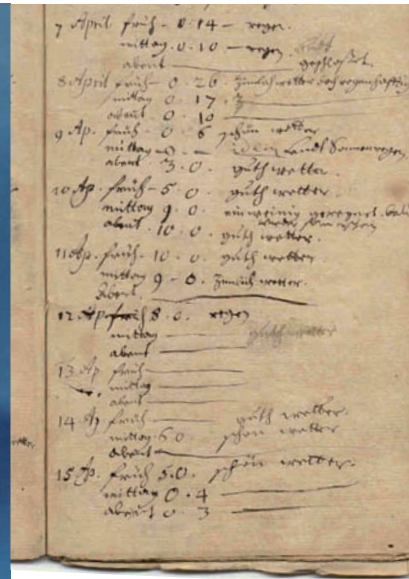 7 April früh - 0. 14 - regen.
mittag. 0. 10 - regen.
abent geschloßet.
8 April früh - 0. 26. Zimlich wetter doch regenhafftig
mittag 0. 17. 3
abent 0. 10
9 Ap. früh - 0 6 schön wetter
mittag - 0. - idem Sonnenregen
abent 3. 0. guth wetter.
10 Ap. früh - 5 0. guth wetter.
mittag 9 0. ein wenig geregnet. bald
wieder schön
abent. 10. 0. guth wetter.
11 Ap. früh - 10. 0. guth wetter.
mittag 9 - 0. Zimlich wetter.
Abent.
12 Ap. früh 8. 0. regen
mittag guth wetter
abent
13 Ap früh
mittag
abent
14 Ap früh guth wetter.
mittag 6 0 schön wetter
Abent
15 Ap. früh 5.0. schön wetter.
mittag 0. 4
Abent 0. 3